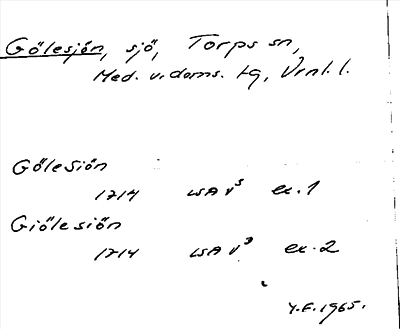 Gölesjön, sjö, Torps sn,
Med. v. doms. tg, Vrnl. l.
Göle Siön
1714 LSA V³ ex. 1
Giöle siön
1714 LSA V³ ex. 2
Y.E. 1965.